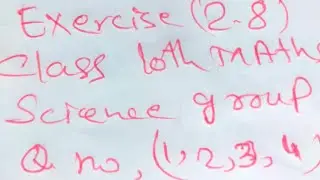 Exercise (2-8)
Class 10th MAths
Science group
Q no, (1, 2, 3, 4)